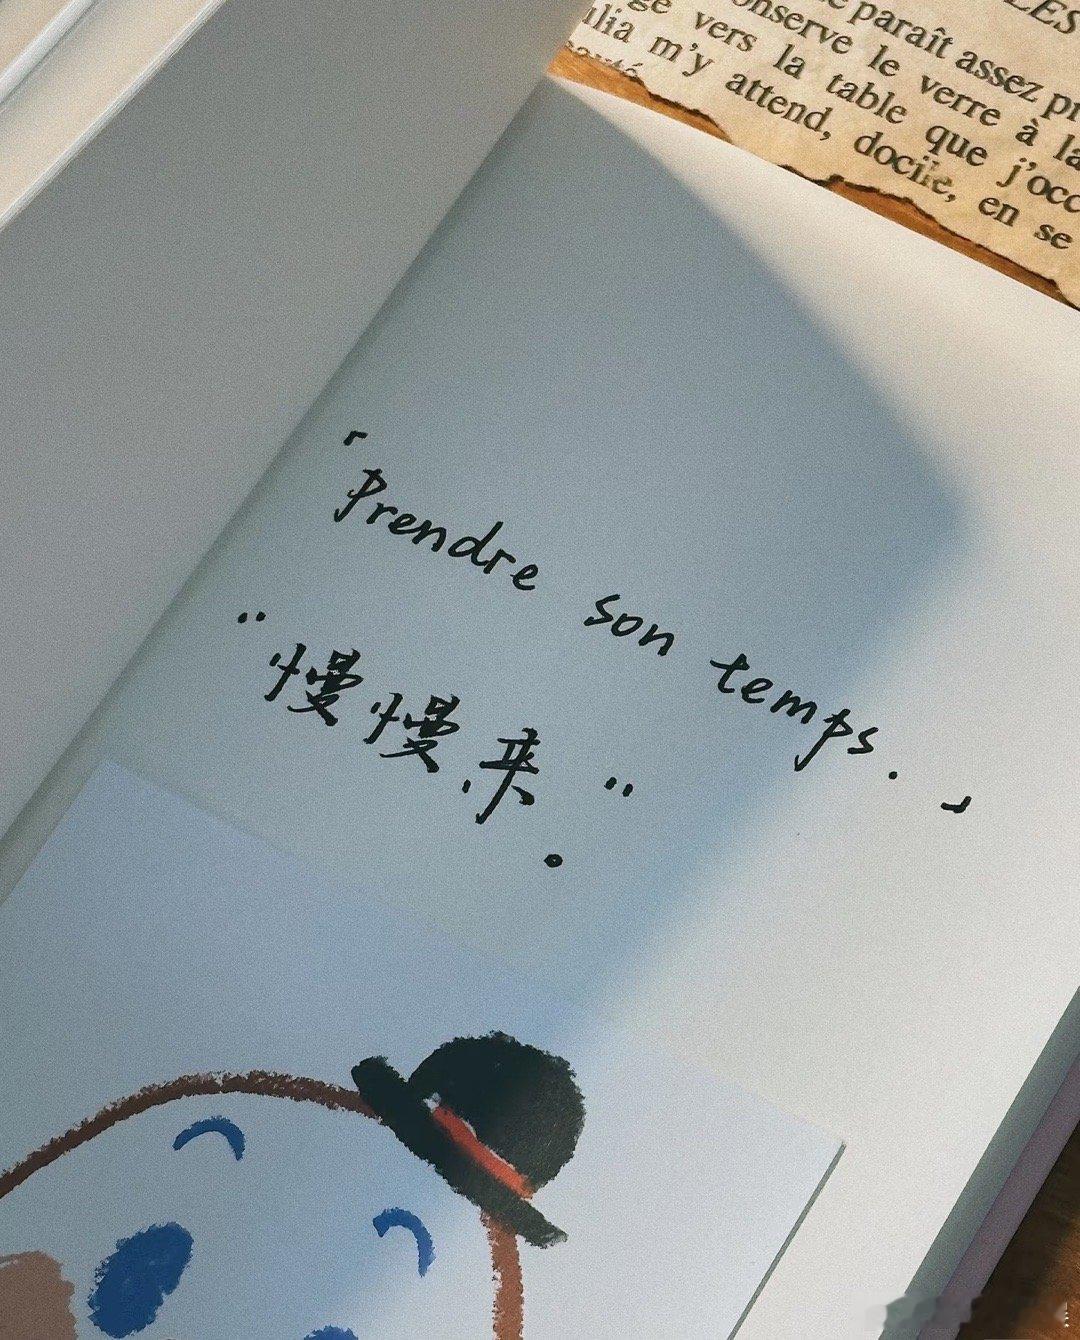 LES
paraît assez
onserve le verre à la
vers la table que j'occ
m'y attend, docile, en se
「Prendre son temps.」
“慢慢来”。